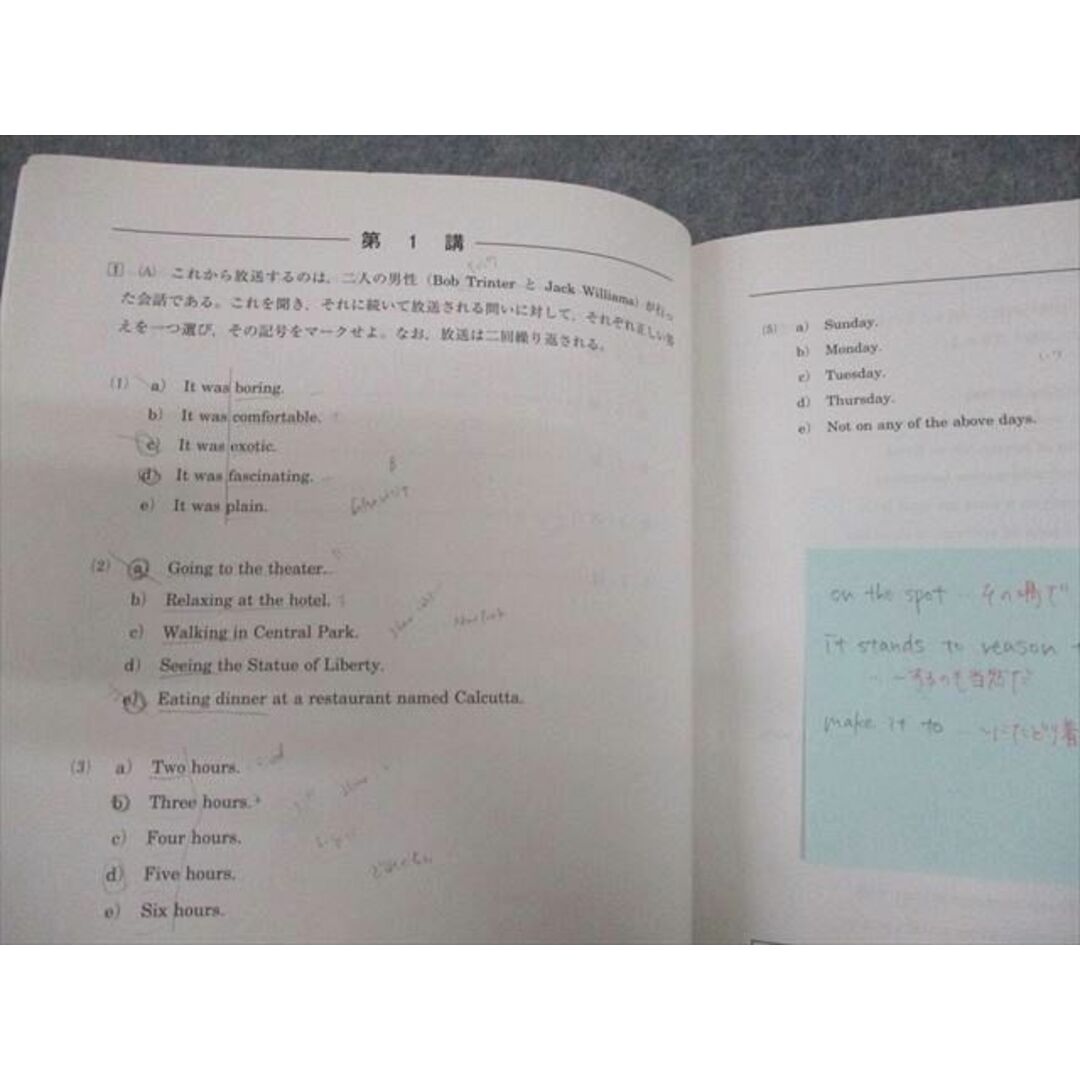 第 1 講
1 (A) これから放送するのは，二人の男性（Bob Trinter と Jack Williams）が行っ
た会話である。これを聞き，それに続いて放送される問いに対して，それぞれ正しい答
えを一つ選び，その記号をマークせよ。なお，放送は二回繰り返される。
(1) a) It was boring.
b) It was comfortable.
c) It was exotic.
d) It was fascinating.
e) It was plain.
(2) a) Going to the theater.
b) Relaxing at the hotel.
c) Walking in Central Park.
d) Seeing the Statue of Liberty.
e) Eating dinner at a restaurant named Calcutta.
(3) a) Two hours.
b) Three hours.
c) Four hours.
d) Five hours.
e) Six hours.
(5) a) Sunday.
b) Monday.
c) Tuesday.
d) Thursday.
e) Not on any of the above days.
on the spot … その場で
it stands to reason
… 〜するのも当然だ
make it to … 〜にたどり着